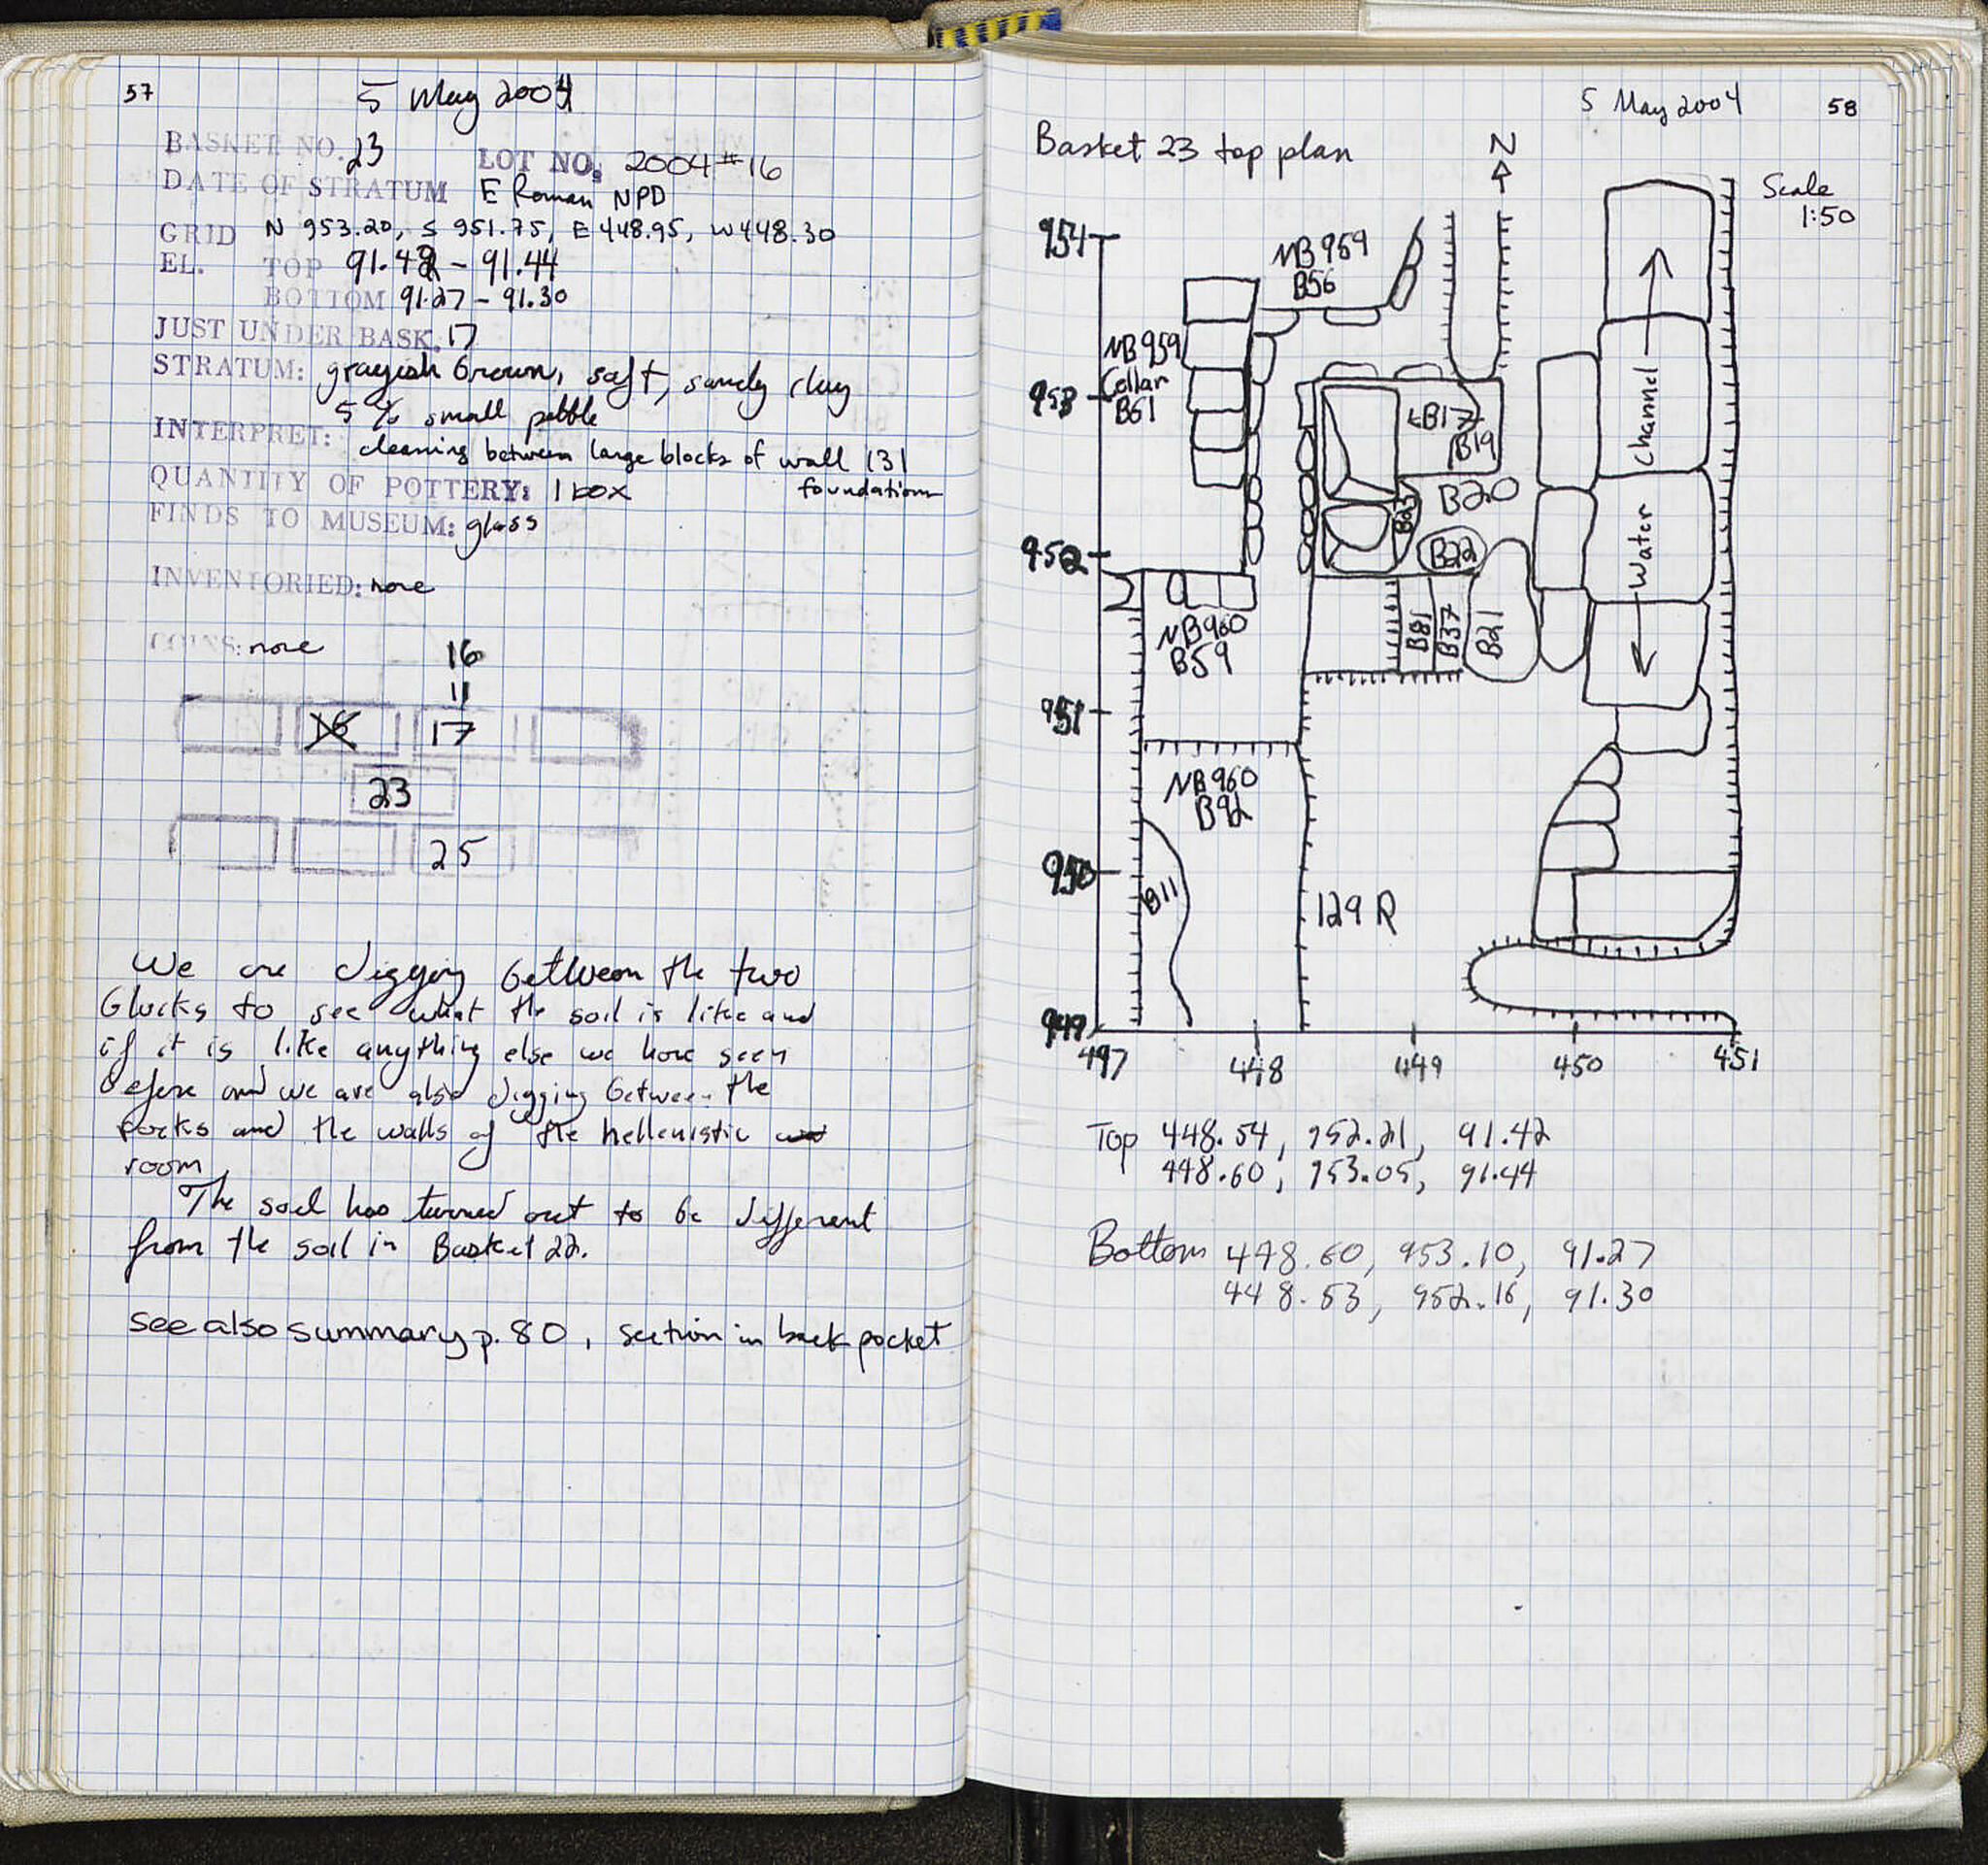 57
5 May 2004
BASKET NO. 23 LOT NO. 2004#16
DATE OF STRATUM E Roman NPD
GRID N 953.20, S 951.75, E 448.95, W 448.30
EL. TOP 91.42 - 91.44
BOTTOM 91.27 - 91.30
JUST UNDER BASK. 17
STRATUM: grayish brown, soft, sandy clay
5% small pebble
INTERPRET: cleaning between large blocks of wall 131
foundation
QUANTITY OF POTTERY: 1 box
FINDS TO MUSEUM: glass
INVENTORIED: none
COINS: none
16
11
17
23
25
We are digging between the two
blocks to see what the soil is like and
if it is like anything else we have seen
before and we are also digging between the
rocks and the walls of the hellenistic
room
The soil has turned out to be different
from the soil in Basket 22.
see also summary p. 80, section in back pocket
5 May 2004 58
Basket 23 top plan
N
Scale
1:50
954
NB 959
B56
NB 959
Cellar
B61
953
B17
B19
B20
B23
Channel
952
B22
Water
NB 960
B59
B81
B37
B21
951
NB 960
B92
950
B11
129 R
949
497 448 449 450 451
Top 448.54, 952.21, 91.42
448.60, 953.05, 91.44
Bottom 448.60, 953.10, 91.27
448.53, 952.16, 91.30